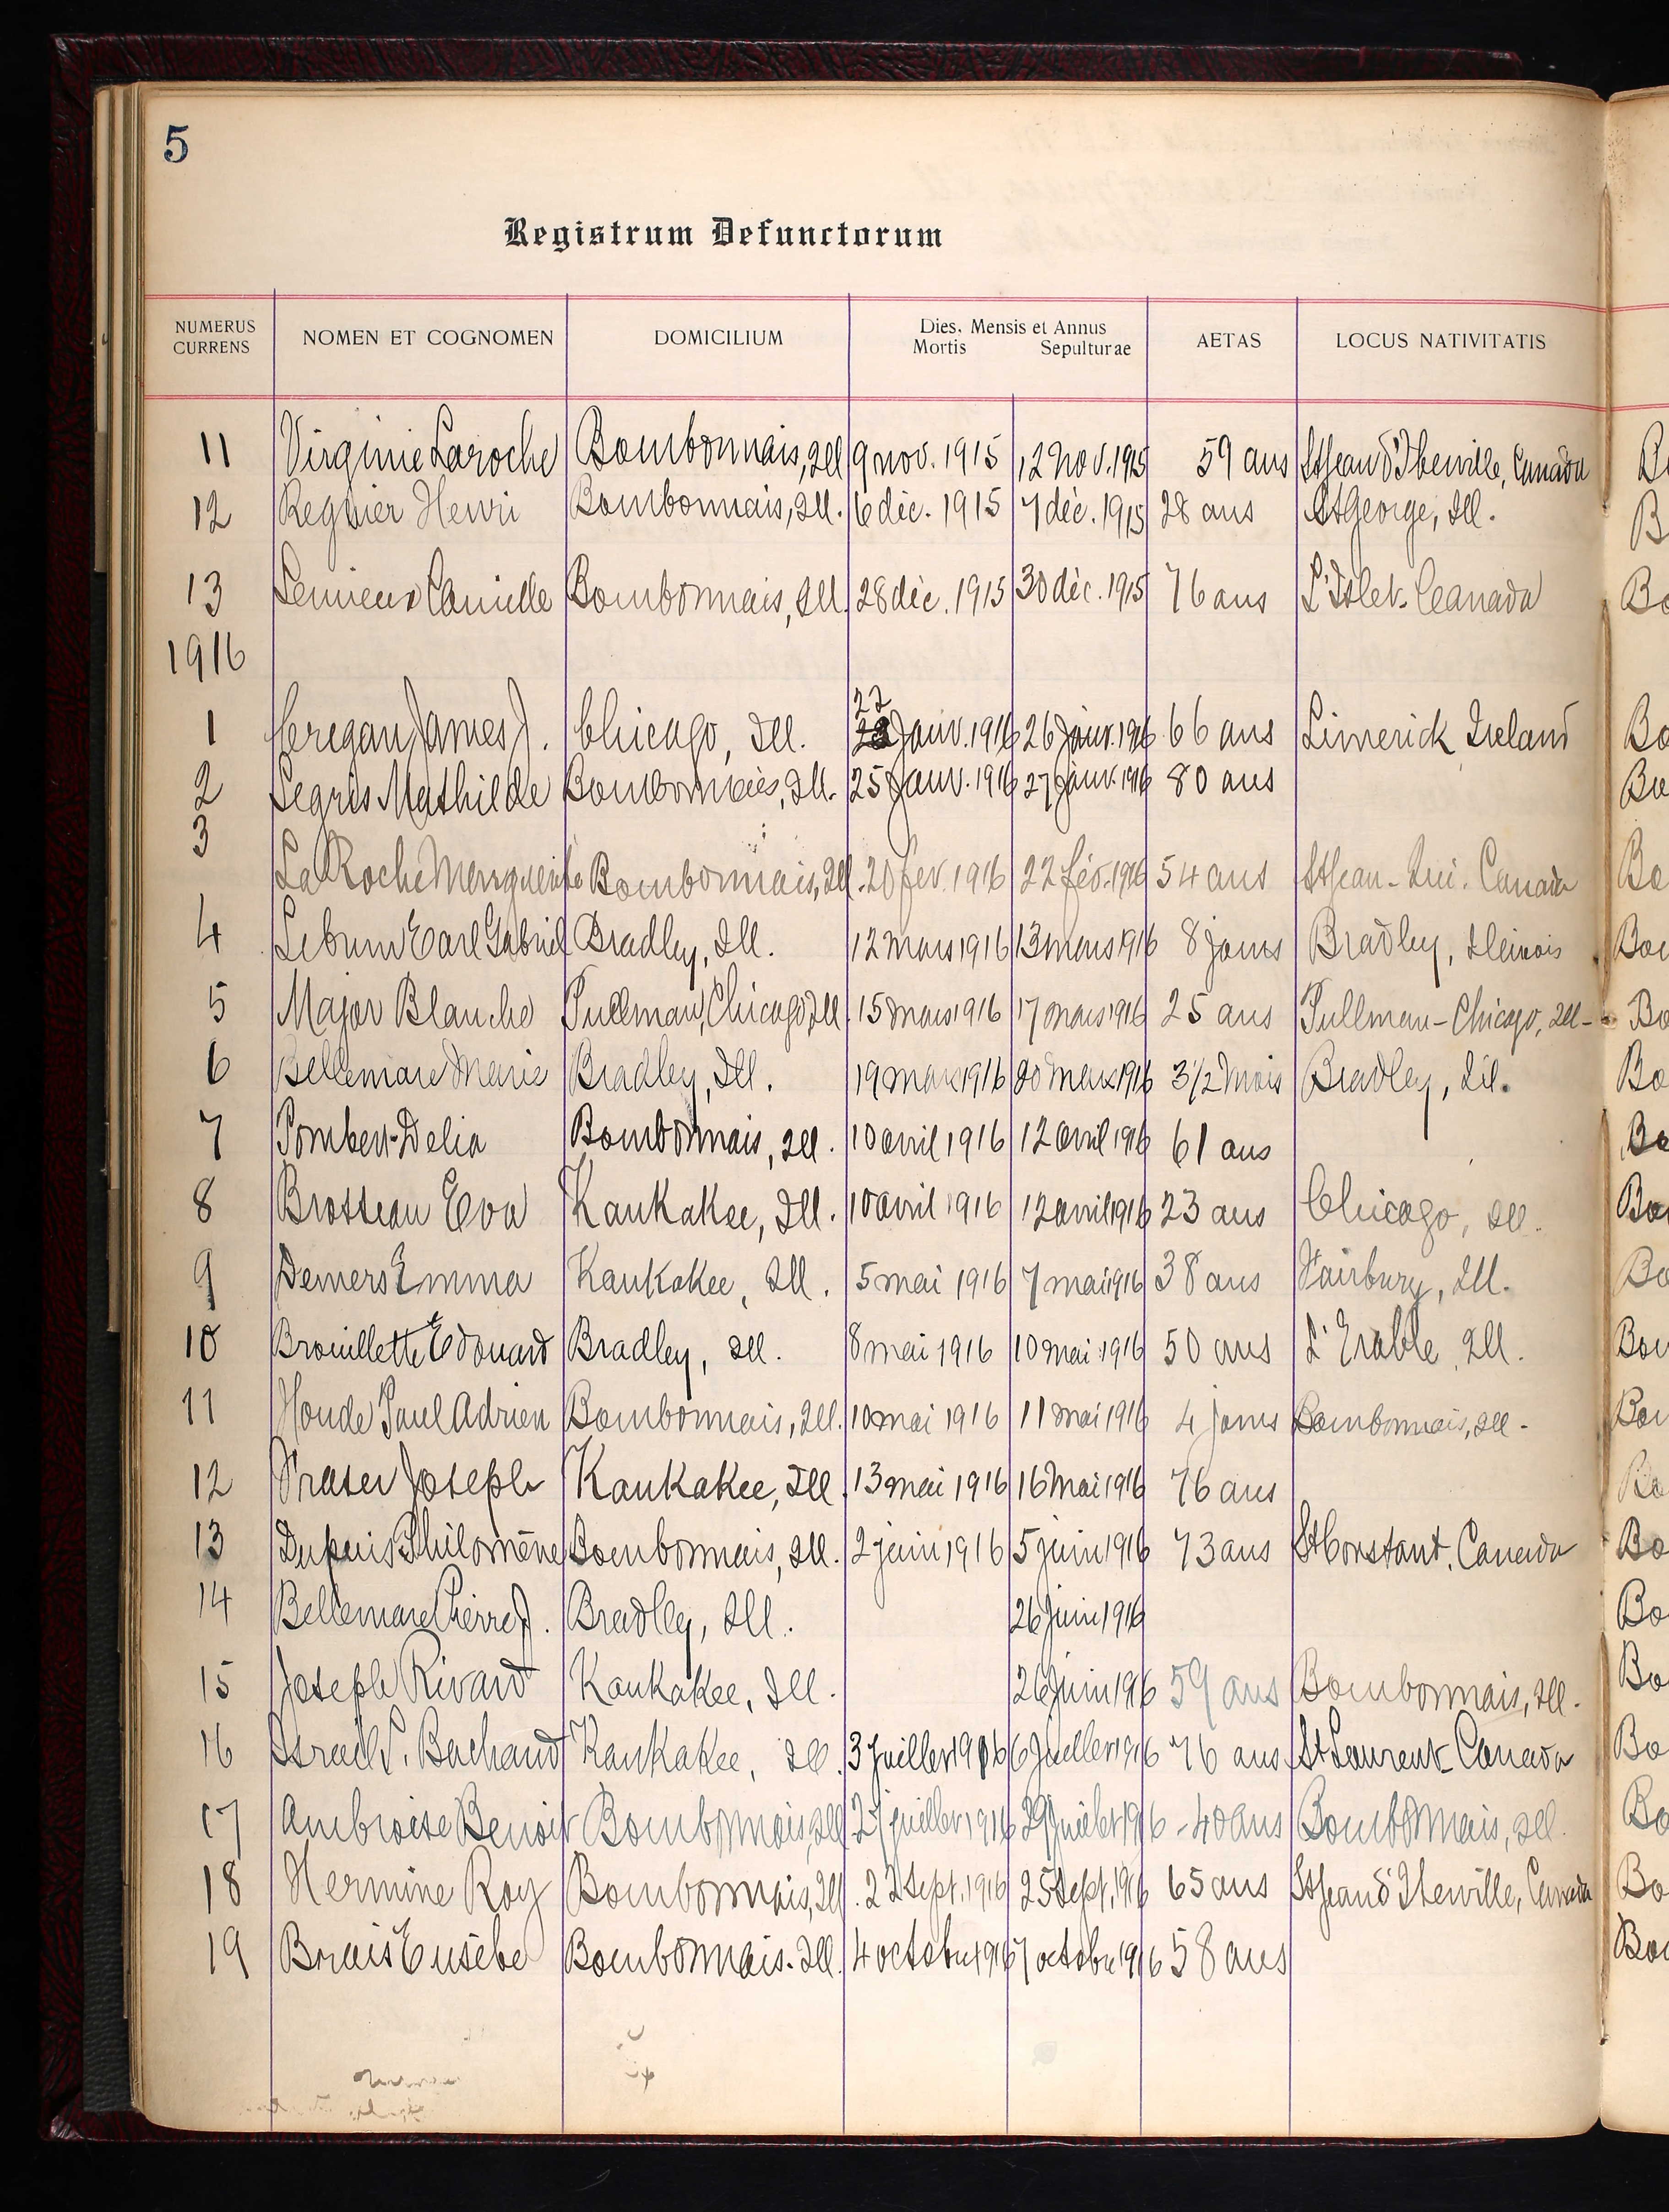 5
Registrum Defunctorum
NUMERUS CURRENS NOMEN ET COGNOMEN DOMICILIUM Dies, Mensis et Annus Mortis Sepulturae AETAS LOCUS NATIVITATIS
11 Virginie Laroche Bourbonnais, Ill 9 nov. 1915 12 nov. 1915 59 ans St Jean d'Iberville, Canada
12 Regnier Henri Bourbonnais, Ill. 6 déc. 1915 7 déc. 1915 28 ans St George, Ill.
13 Lemieux Camille Bourbonnais, Ill. 28 déc. 1915 30 déc. 1915 76 ans L'Islet. Canada
1916
1 Cregan James J. Chicago, Ill. 22 Janv. 1916 26 Janv. 1916 66 ans Limerick Ireland
2 Legris Mathilde Bourbonnais, Ill. 25 Janv. 1916 27 Janv. 1916 80 ans
3 LaRoche Marguerite Bourbonnais, Ill. 20 fev. 1916 22 fév. 1916 54 ans St Jean - Canada
4 Earl Gabriel Bradley, Ill. 12 mars 1916 13 mars 1916 8 jours Bradley, Illinois
5 Major Blanche Pullman, Chicago, Ill. 15 mars 1916 17 mars 1916 25 ans Pullman - Chicago, Ill -
6 Bellemare Marie Bradley, Ill. 19 mars 1916 20 mars 1916 3 1/2 mois Bradley, Ill.
7 Pombert Delia Bourbonnais, Ill. 10 avril 1916 12 avril 1916 61 ans
8 Brosseau Eva Kankakee, Ill. 10 avril 1916 12 avril 1916 23 ans Chicago, Ill.
9 Demers Emma Kankakee, Ill. 5 mai 1916 7 mai 1916 38 ans Fairbury, Ill.
10 Brouillette Edouard Bradley, Ill. 8 mai 1916 10 mai 1916 50 ans L'Erable, Ill.
11 Houde Paul Adrien Bourbonnais, Ill. 10 mai 1916 11 mai 1916 4 jours Bourbonnais, Ill -
12 Fraser Joseph Kankakee, Ill. 13 mai 1916 16 Mai 1916 76 ans
13 Dupuis Philomène Bourbonnais, Ill. 2 juin 1916 5 juin 1916 73 ans St Constant. Canada
14 Bellemare Pierre J. Bradley, Ill. 26 Juin 1916
15 Joseph Rivard Kankakee, Ill. 26 Juin 1916 59 ans Bourbonnais, Ill.
16 Israel Bachand Kankakee, Ill. 3 Juillet 1916 6 Juillet 1916 76 ans St Laurent Canada
17 Ambroise Benoit Bourbonnais, Ill 27 juillet 1916 29 Juillet 1916 - 40 ans Bourbonnais, Ill.
18 Hermine Roy Bourbonnais, Ill. 22 Sept. 1916 25 Sept. 1916 65 ans St Jean d'Iberville, Canada
19 Brais Eusèbe Bourbonnais. Ill. 4 octobre 1916 7 octobre 1916 58 ans